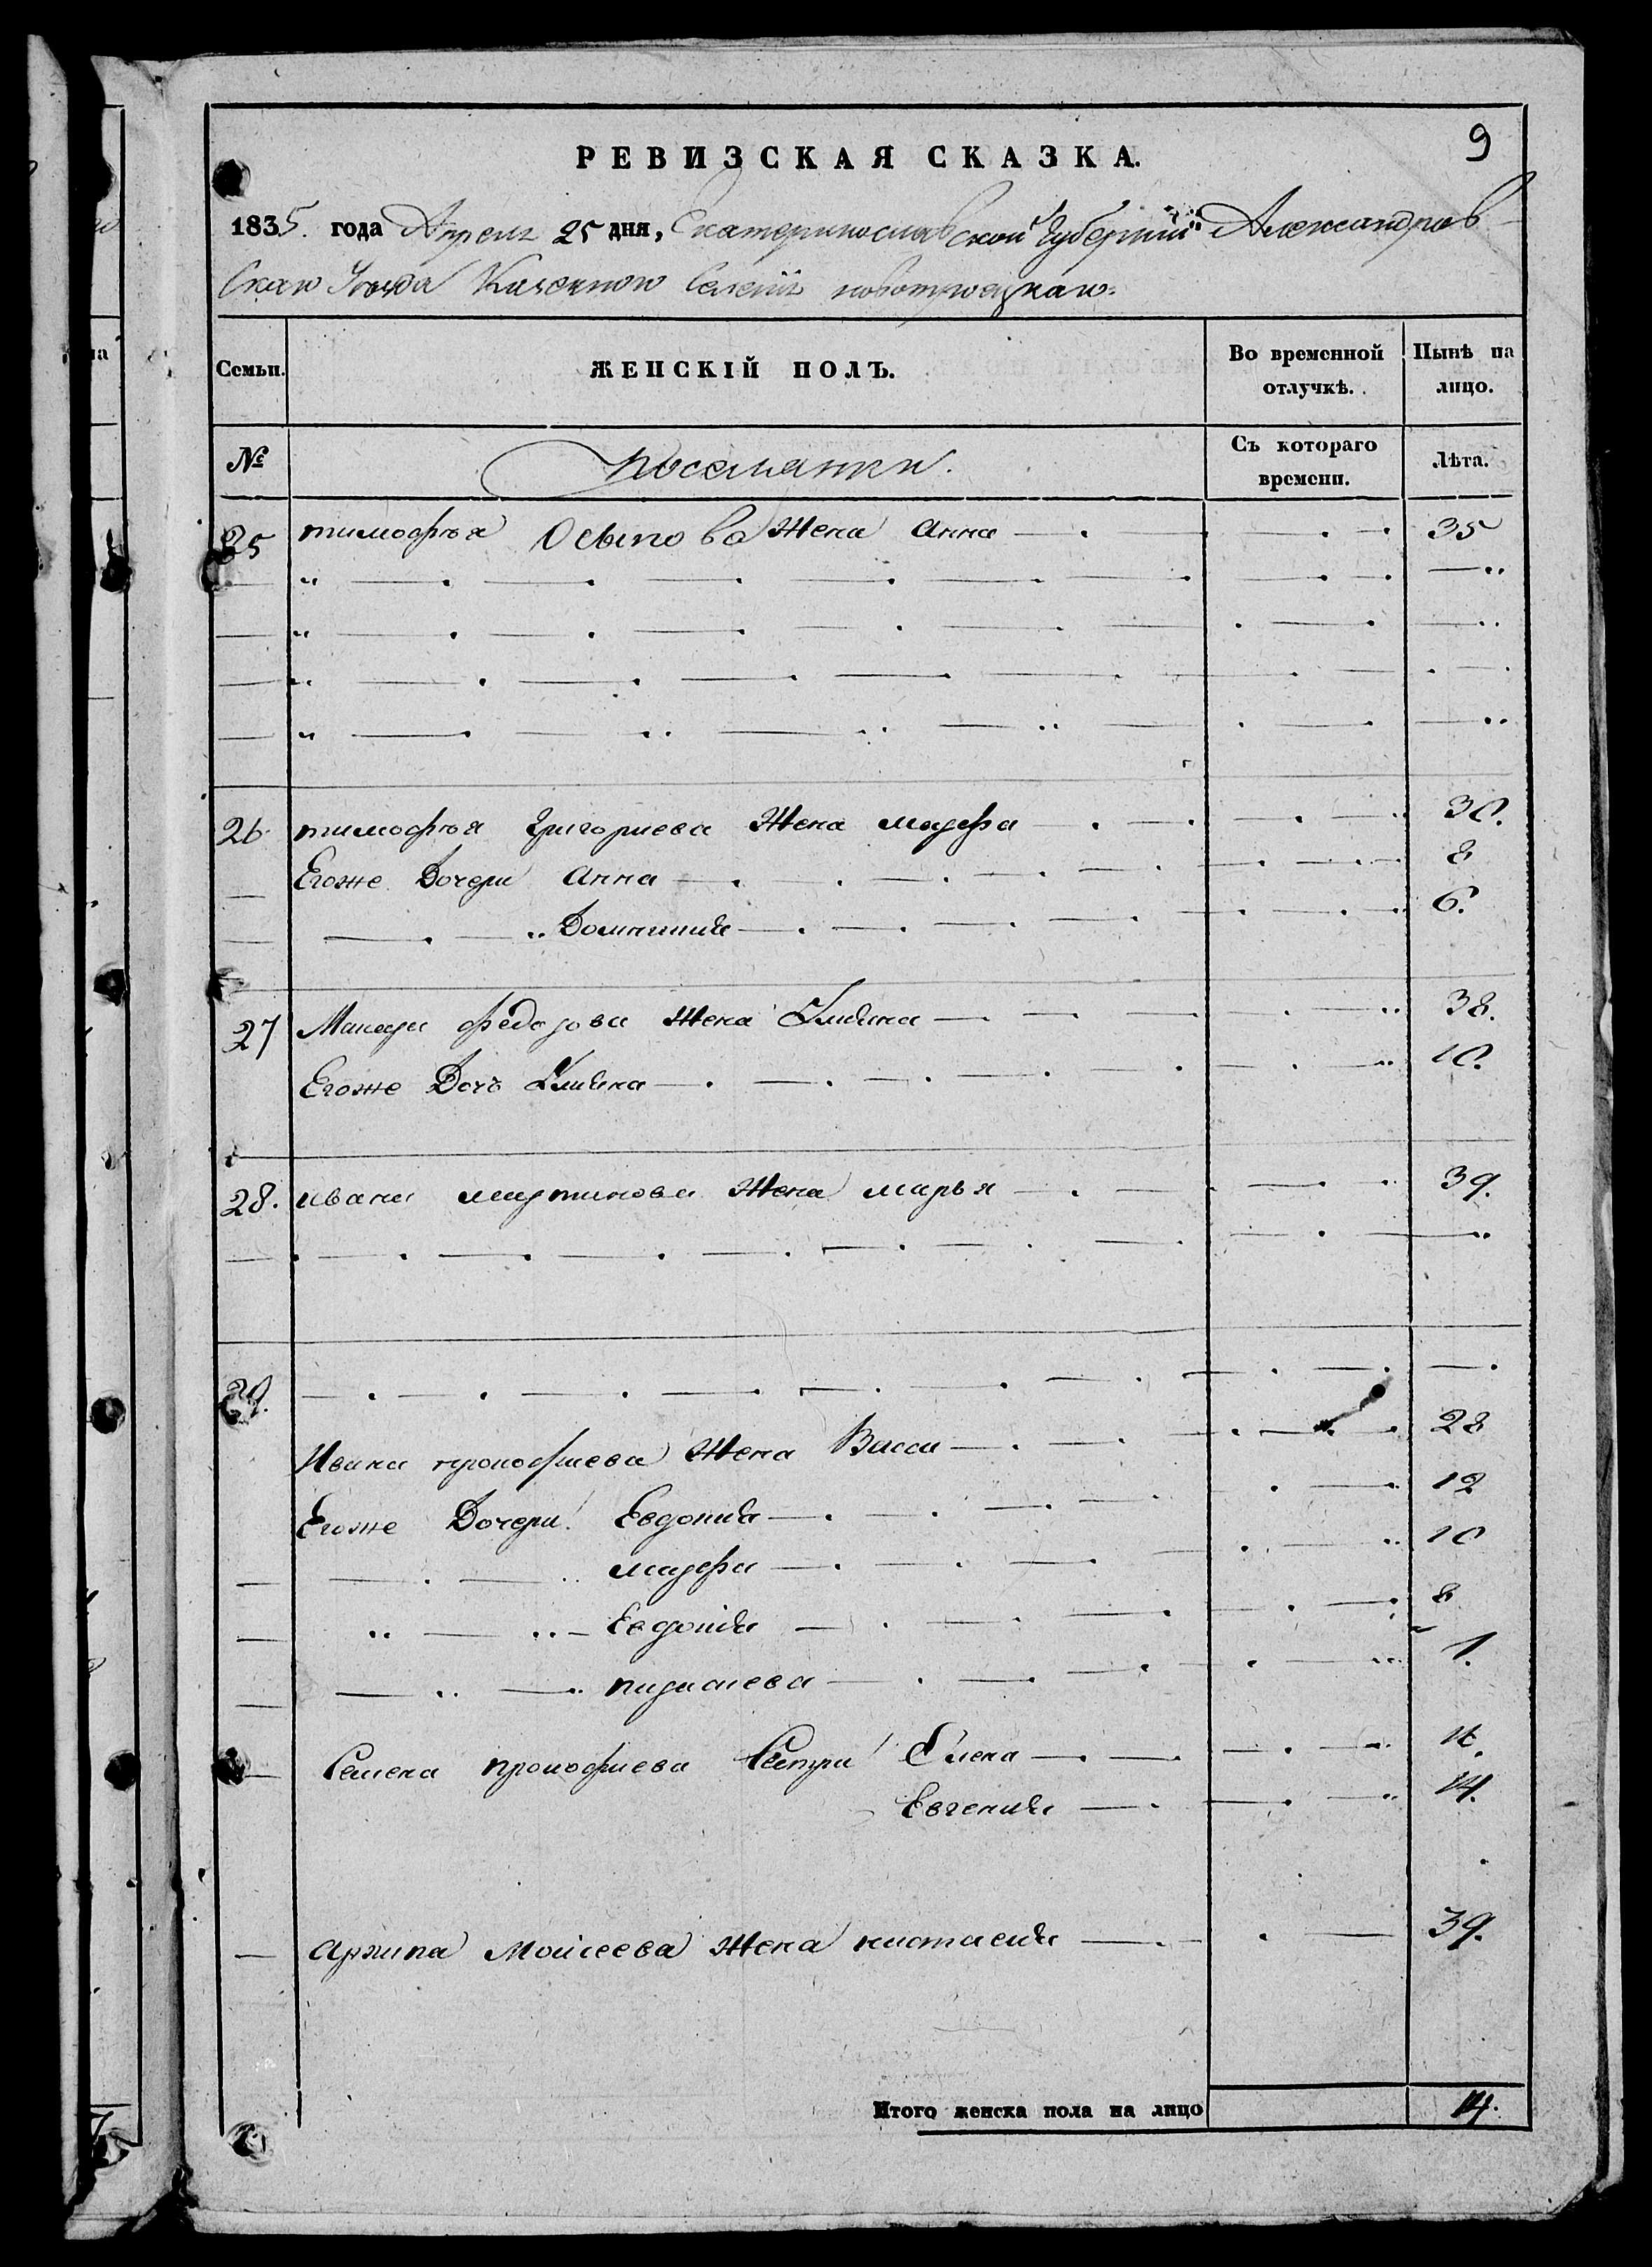 9
РЕВИЗСКАЯ СКАЗКА.
1835. года Апреля 25 дня, Екатеринославской Губернии Александров-
скаго Уезда Казенного Селения новотроецкаго.
Семьи.
ЖЕНСКІЙ ПОЛЪ.
Во временной отлучкѣ.
Нынѣ на лицо.
№
поселянки.
Съ котораго времени.
Лѣта.
25 тимофѣя Осыпова Жена Анна 35
26. тимофѣя Григориева Жена марфа 30.
Егоже Дочери Анна 8
Домникия 6.
27 Федорова Жена Улияна 38.
Егоже Дочь Улияна 10.
28. ивана мартинова Жена марья 39.
29.
Ивана прокофиева Жена Васса 28
Егоже Дочери Евдокия 12
марфа 10
Евдокия 8
1.
Семена прокофиева Сестри Елена 16.
Евгения 14.
Архипа Моисеева Жена настасия 39.
Итого женска пола на лицо 14.